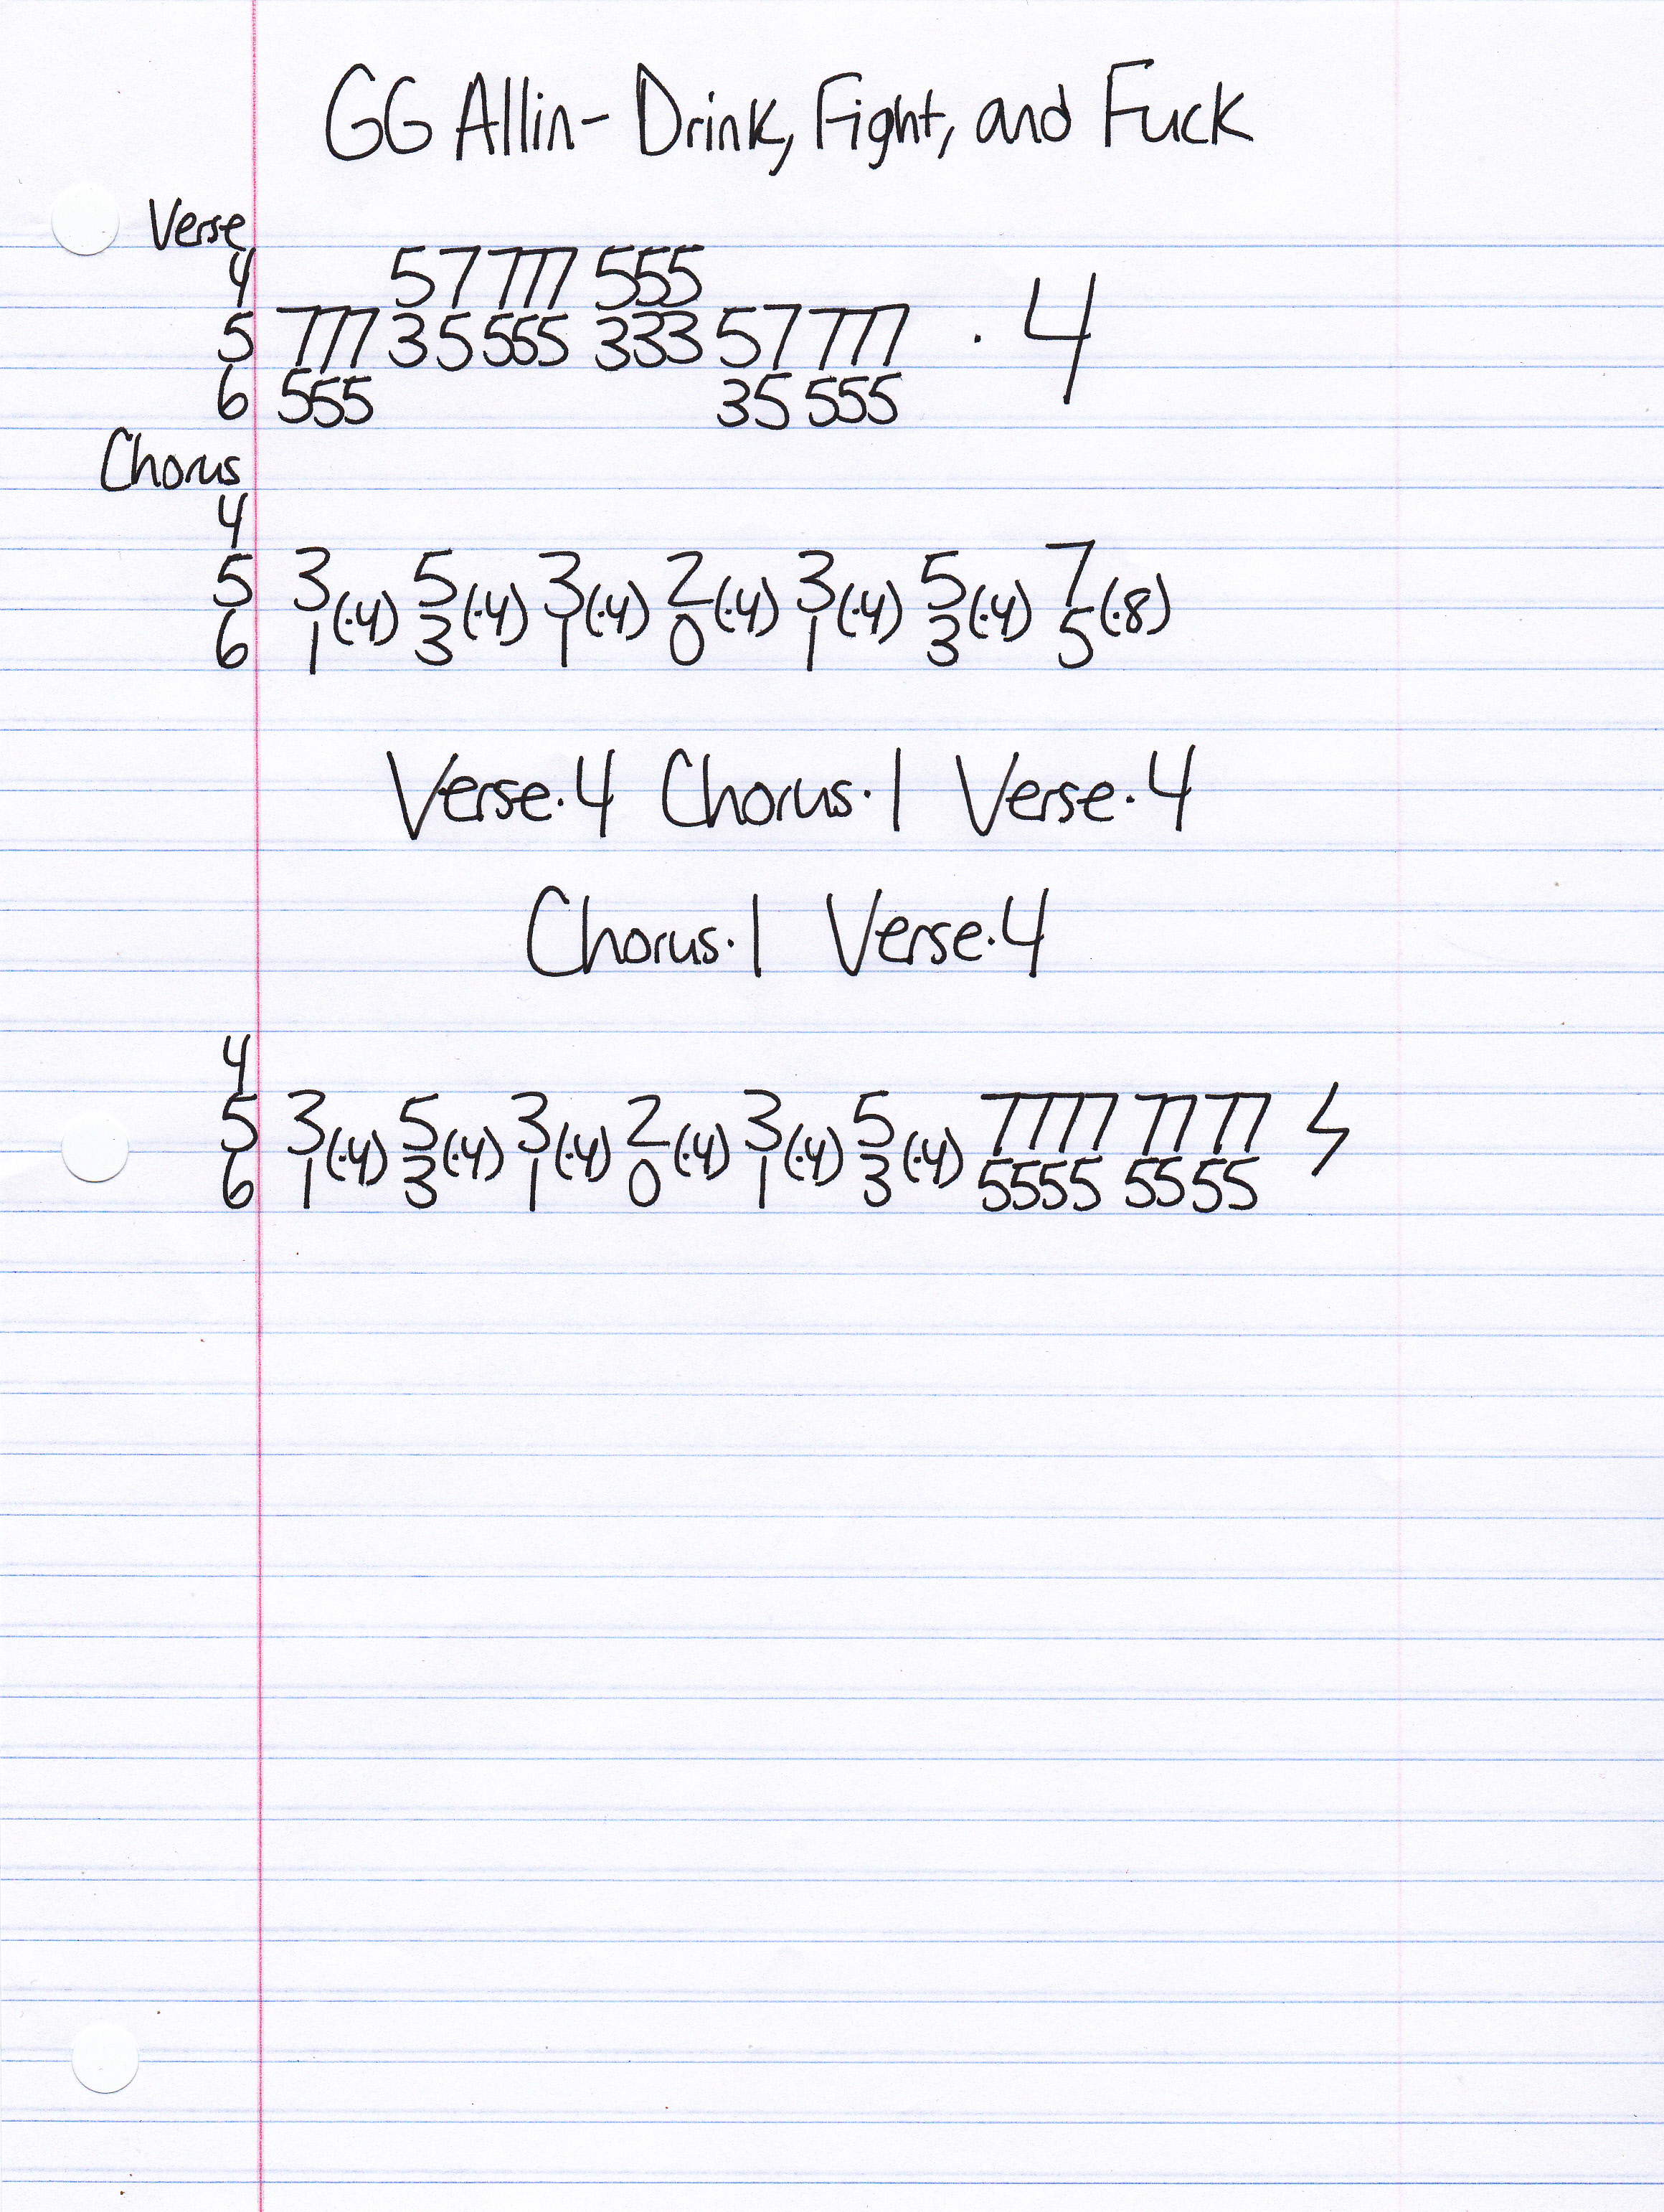 GG Allin- Drink, Fight, and Fuck
Verse
4 57 777 555
5 777 35 555 333 57 777 · 4
6 555 35 555
Chorus
4
5 3 5 3 2 3 5 7
(·4) (·4) (·4) (·4) (·4) (·4) (·8)
6 1 3 1 0 1 3 5
Verse·4 Chorus·1 Verse·4
Chorus·1 Verse·4
4
5 3 5 3 2 3 5 7777 77 77
(·4) (·4) (·4) (·4) (·4) (·4)
6 1 3 1 0 1 3 5555 55 55